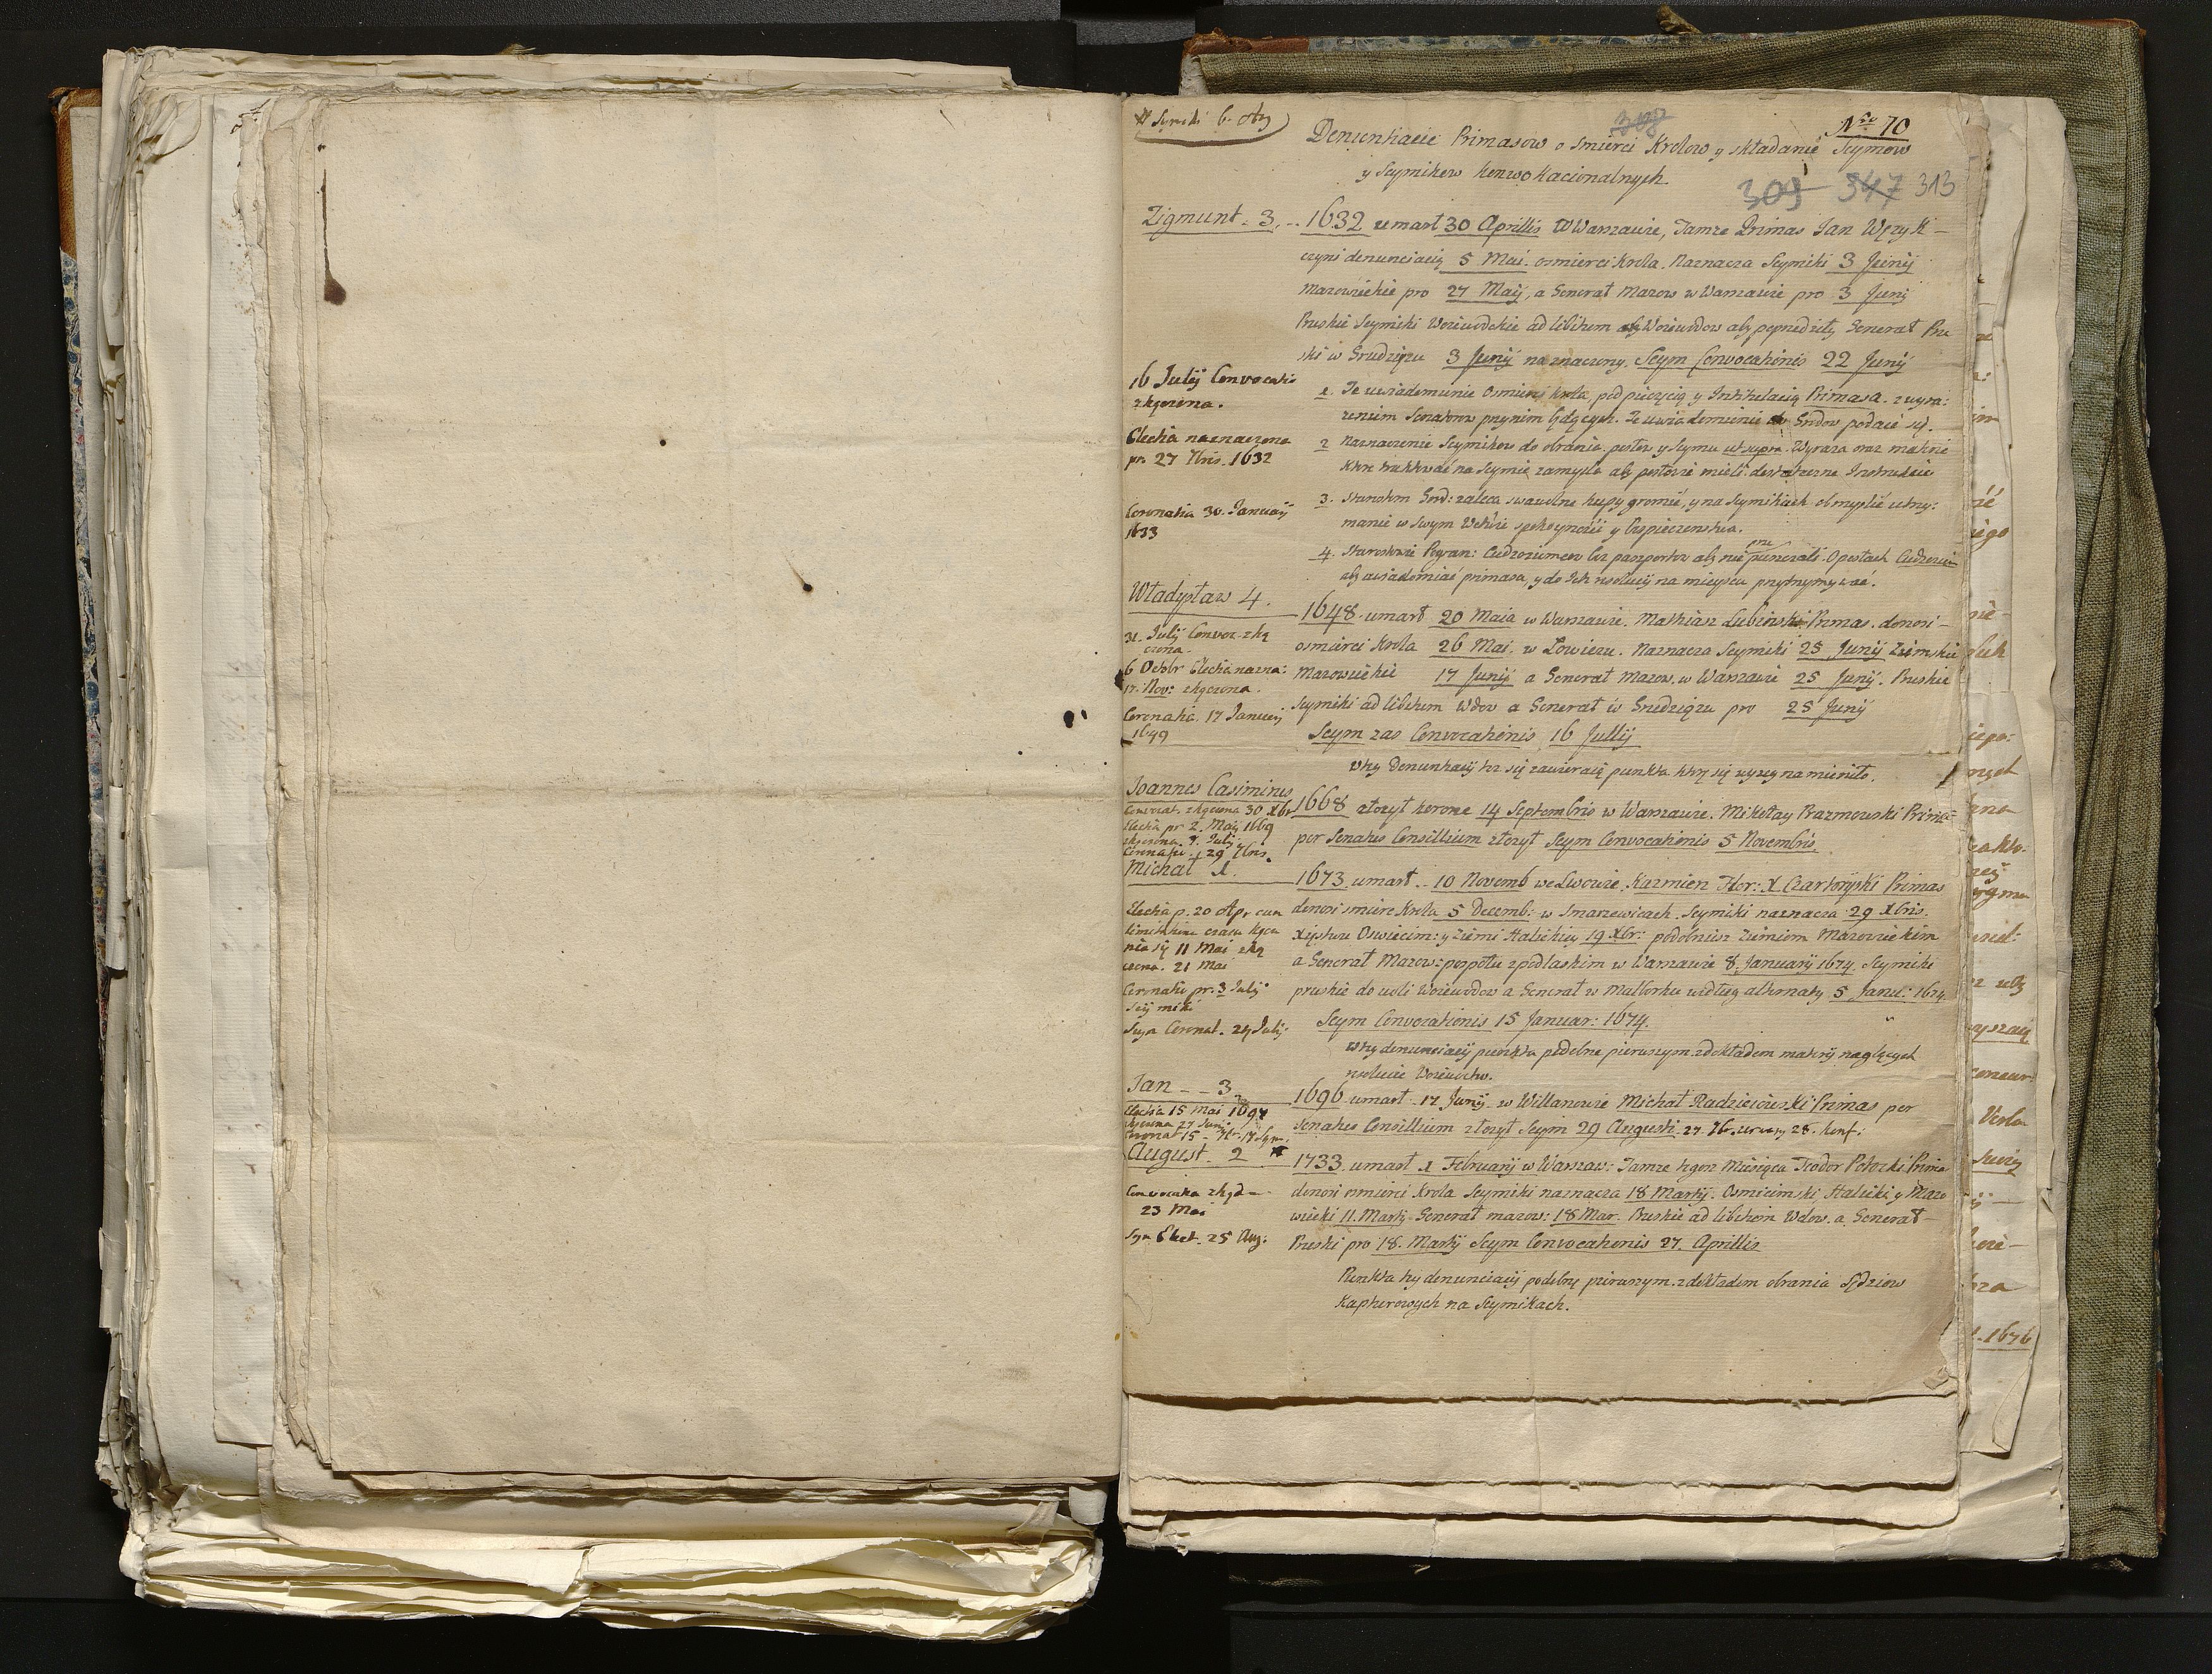 Nro 70
308
Denuntiacie Primasow o smierci Krolow y składanie Seymow
y Seymikow Konwokacionalnych
309 347 313
Zigmunt 3. 1632 umarł 30 Aprillis w Warszawie, Tamze Primas Jan Wężyk
czyni denunciacią 5 Mai. o smierci Krola. Naznacza Seymiki 3 Junij
Mazowieckie pro 27 Maij, a Generał Mazow w Warszawie pro 3 Junij
Pruskie Seymiki Woiewodskie ad libitum Woiewodow aby poprzedziły Generał Pru
ski w Grudziązu 3 Junij naznaczony. Seym Convocationis 22 Junij
16 Julij Convocatio
zkączona.
Electia naznaczona
pr. 27 7bris 1632
Coronatia 30. Januarij
1633
1. Te uwiadomienie o smierci krola, pod pieczęcią y Intitulacią Primasa. z wyra:
zeniem Senatorow przynim będących. Te uwiadomienie do Grodow podaie się.
2 Naznaczenie Seymikow do obrania posłow y Seymu ut supra. Wyraza oraz materie
ktore traktować na Seymie zamysla aby posłowie mieli dostateczne Instrukcie
3. Starostom Grod: zaleca swawolne kupy gromić, y na Seymikach obmyslić utrzy:
manie w swym Wctwie spokoyności y bespieczenstwa.
4. Starostowie Pogran: Cudzoziemcow bez paszportow aby nie puszczali. O posłach Cudzoziem
aby uwiadomiać primasa, y do Ich rezolucij na mieyscu przytrzymywać.
Władysław 4.
31. Julij Convoc. zką
czona.
6 Octobr Electia nazna:
17. Nov: zkączona.
Coronatia. 17 Januarij
1649
1648. umarł 20 Maia w Warszawie. Mathiasz Lubienski Primas. donosi
o smierci Krola 26 Mai. w Łowiczu. Naznacza Seymiki 25 Junij Ziemskie
Mazowieckie 17 Junij a Generał Mazow. w Warszawie 25 Junij. Pruskie
Seymiki ad libitum Wdow a Generał w Grudziązu pro 25 Junij
Seym zas Convocationis 16 Jullij
w tey Denuntiacij też się zawieraią punkta ktore się wyzey namieniło.
Joannes Casimirus
Convocat. zkączona 30 Xbr
Electia pr 2. Maij 1669
zkączona. 7. Julij
Coronatio 29 7bris.
1668 złozył korone 14 Septembris w Warszawie. Mikołay Prazmowski Primas
per Senatus Consillium złozył Seym Convocationis 5 Novembris.
Michał 1.
Electia p. 20 Apr cum
limitatione czasu kącze
nia się 11 Mai zką
czona. 21 Mai
Coronatio pr. 3 Julij
Seymiki
Seym Coronat. 24 Julij.
1673. umarł 10 Novemb we Lwowie. Kazmierz Flor: X Czartoryiski Primas
donosi smierc Krola 5 Decemb: w Smarzewicach. Seymiki naznacza 29 Xbris.
Xięstwu Oswięcim: y Ziemi Halickiey 19 Xbr: podobniesz Ziemiom Mazowieckim
a Generał Mazow: pospołu z podlaskim w Warszawie 8. Januarij 1674. Seymiki
pruskie do woli Woiewodow a Generał w Malborku według alternaty 5 Janu: 1674.
Seym Convocationis 15 Januar: 1674.
W tey denunciacij punkta podobne pierwszym. z dokładem materij naglących
Jan 3
Electia 15 Mai 1697
zkączona 27 Junij
1696 umarł 17 Junij w Willanowie Michał Radzieiowski Primas per
Senatus Consillium złozył Seym 29 Augusti
August 2
Convocatia zkącz
23 Mai
Seym Elect. 25 Aug:
1733. umarł 1 Februarij w Warszaw: Tamze tegosz Miesiąca Teodor Potocki Prima
donosi o smierci Krola Seymiki naznacza 18 Martij. Oswiecimski Halicki y Mazo
wiecki 11. Martij Generał mazow: 18 Mar. Pruskie ad libitum Wdow. a Generał
Pruski pro 18. Martij Seym Convocationis 27. Aprillis
Punkta tey denunciacij podobne pierwszym. z dokładem obrania Sędziow
Kapturowych na Seymikach.
1676